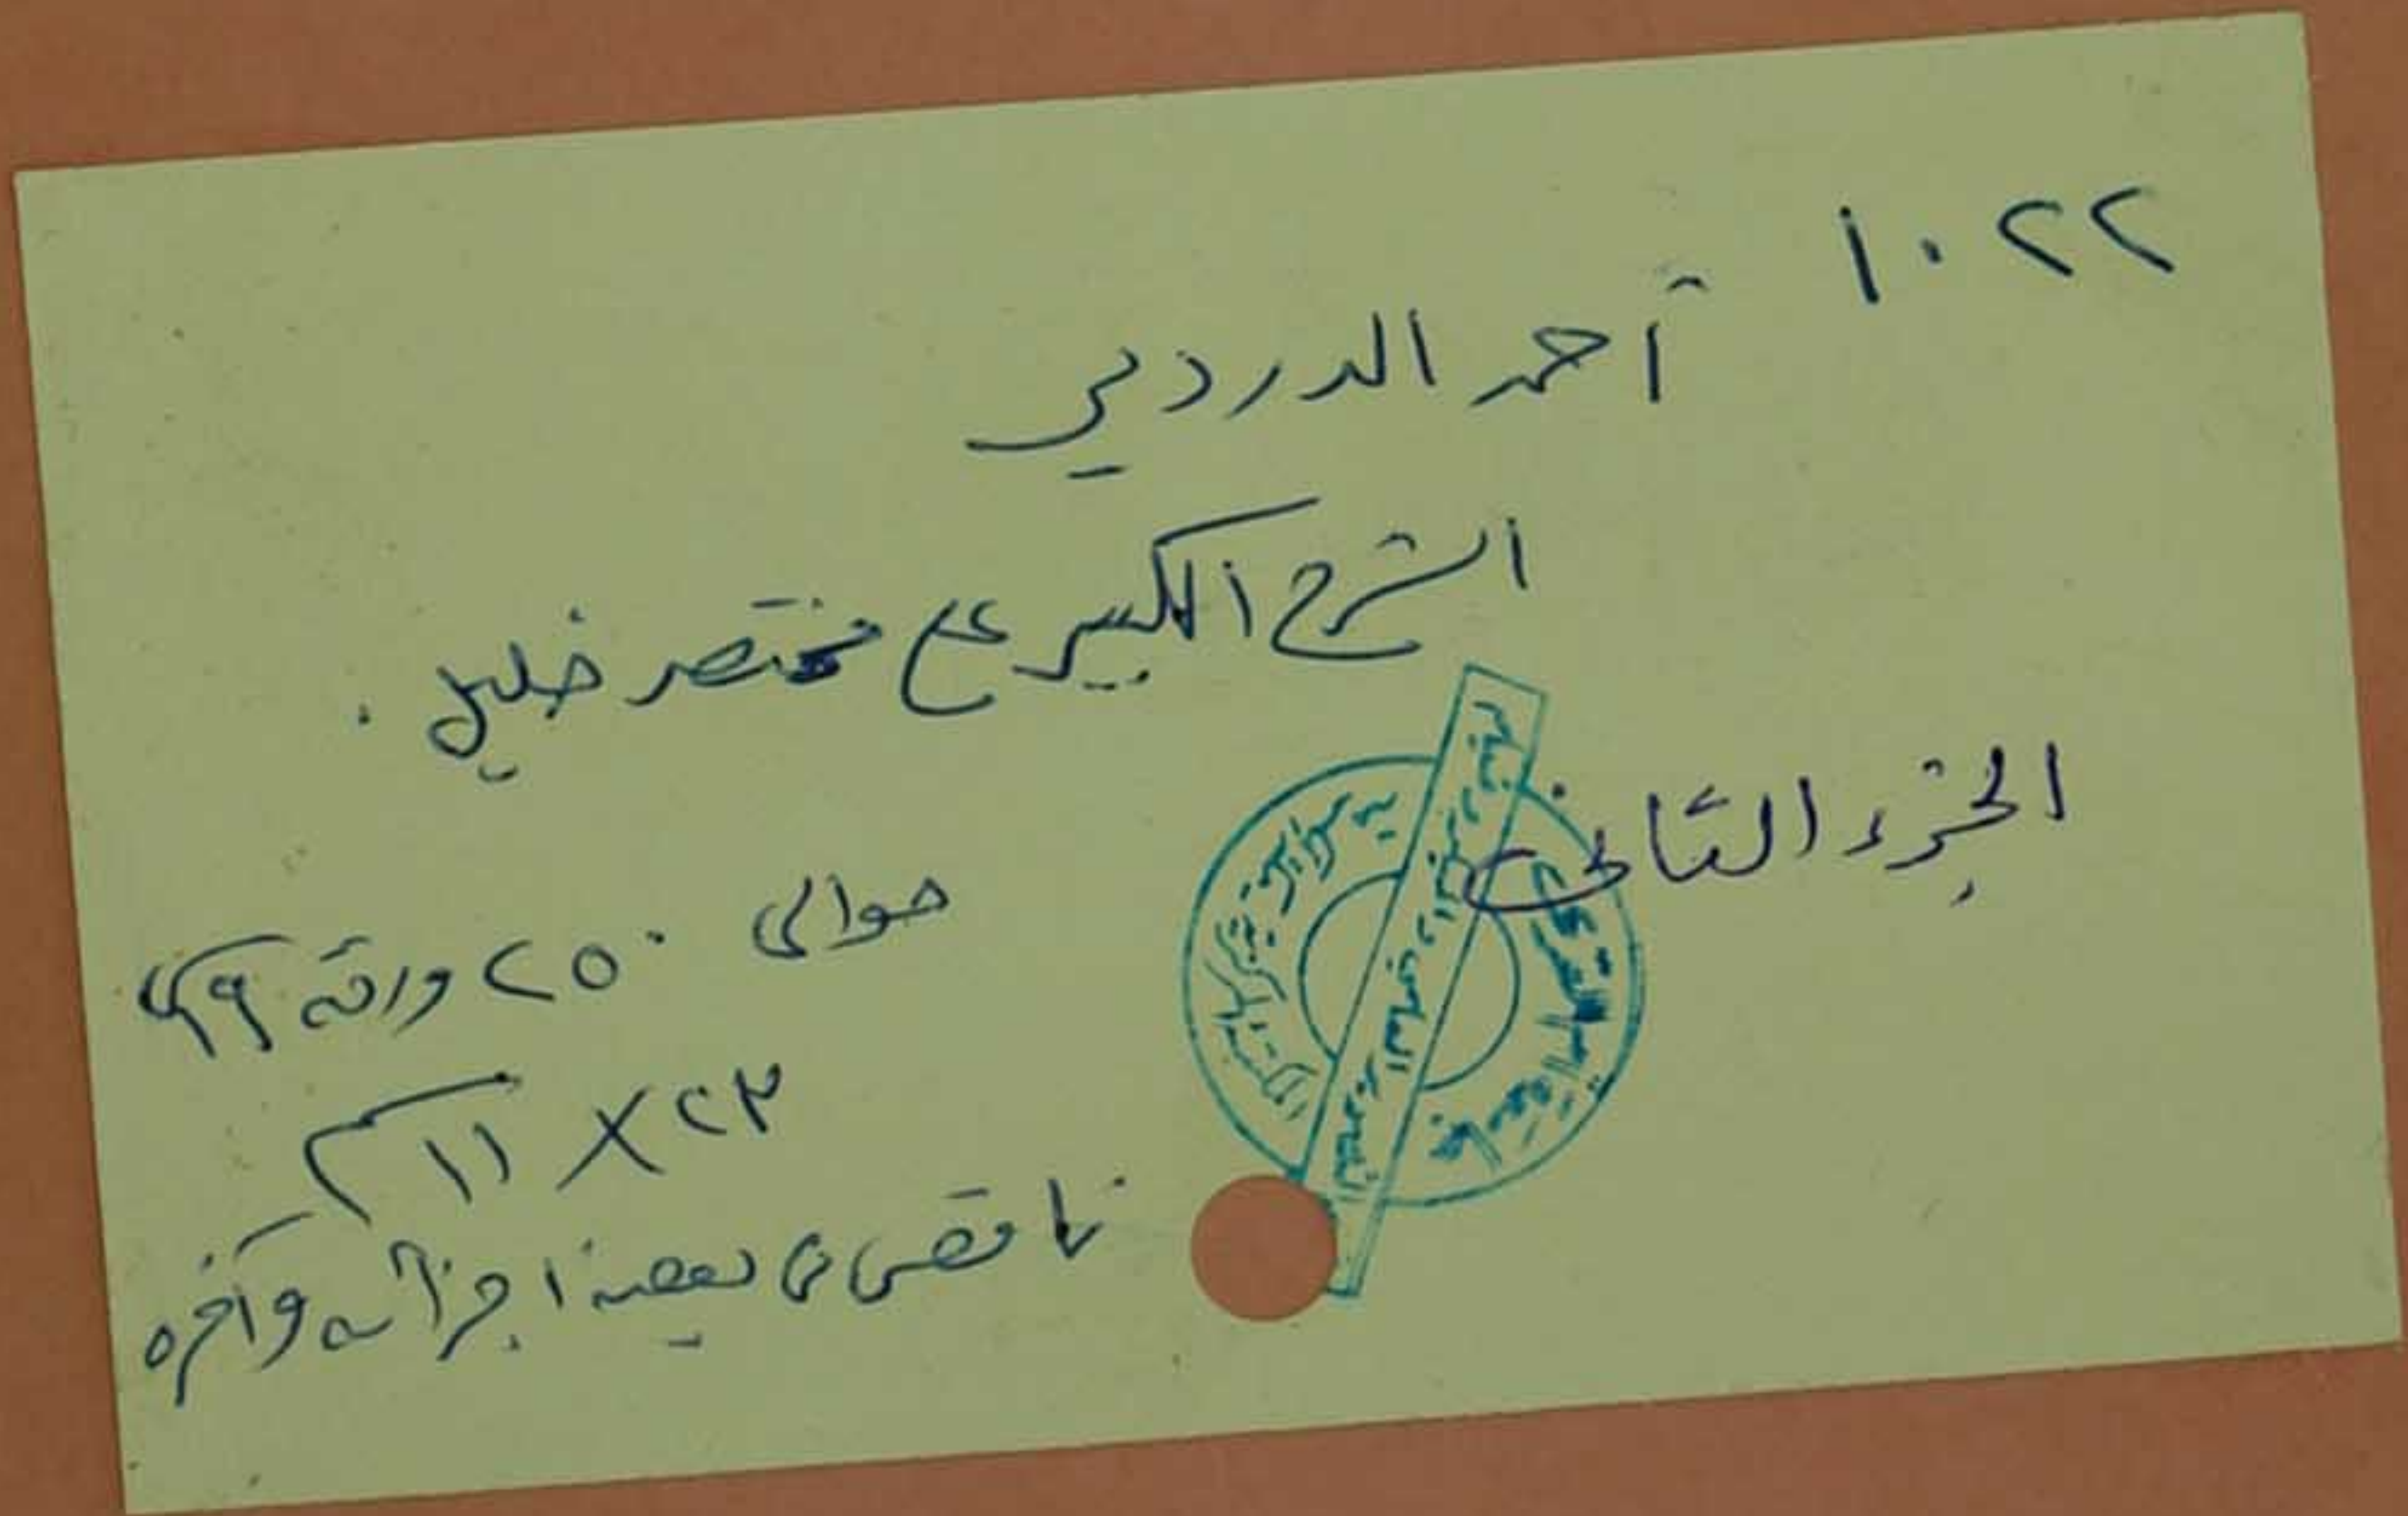 ١٠٢٢
أحمد الدردير
الشرح الكبير على مختصر خليل .
الجزء الثاني
حوالي ٢٥٠ ورقة
٢٣ × ١١ سم
ناقص من بعض اجزائه وآخره